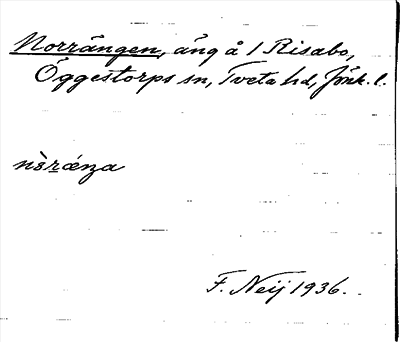 Norrängen, äng å 1 Risabo,
Öggestorps sn, Tveta hd, Jönk. l.
F. Neij 1936.